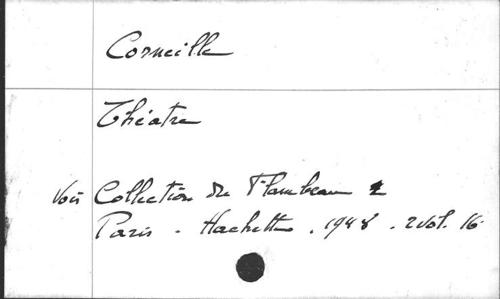 Corneille
Théatre
Voir Collection du Flambeau 2
Paris - Hachette . 1948 . 2 vol. 16